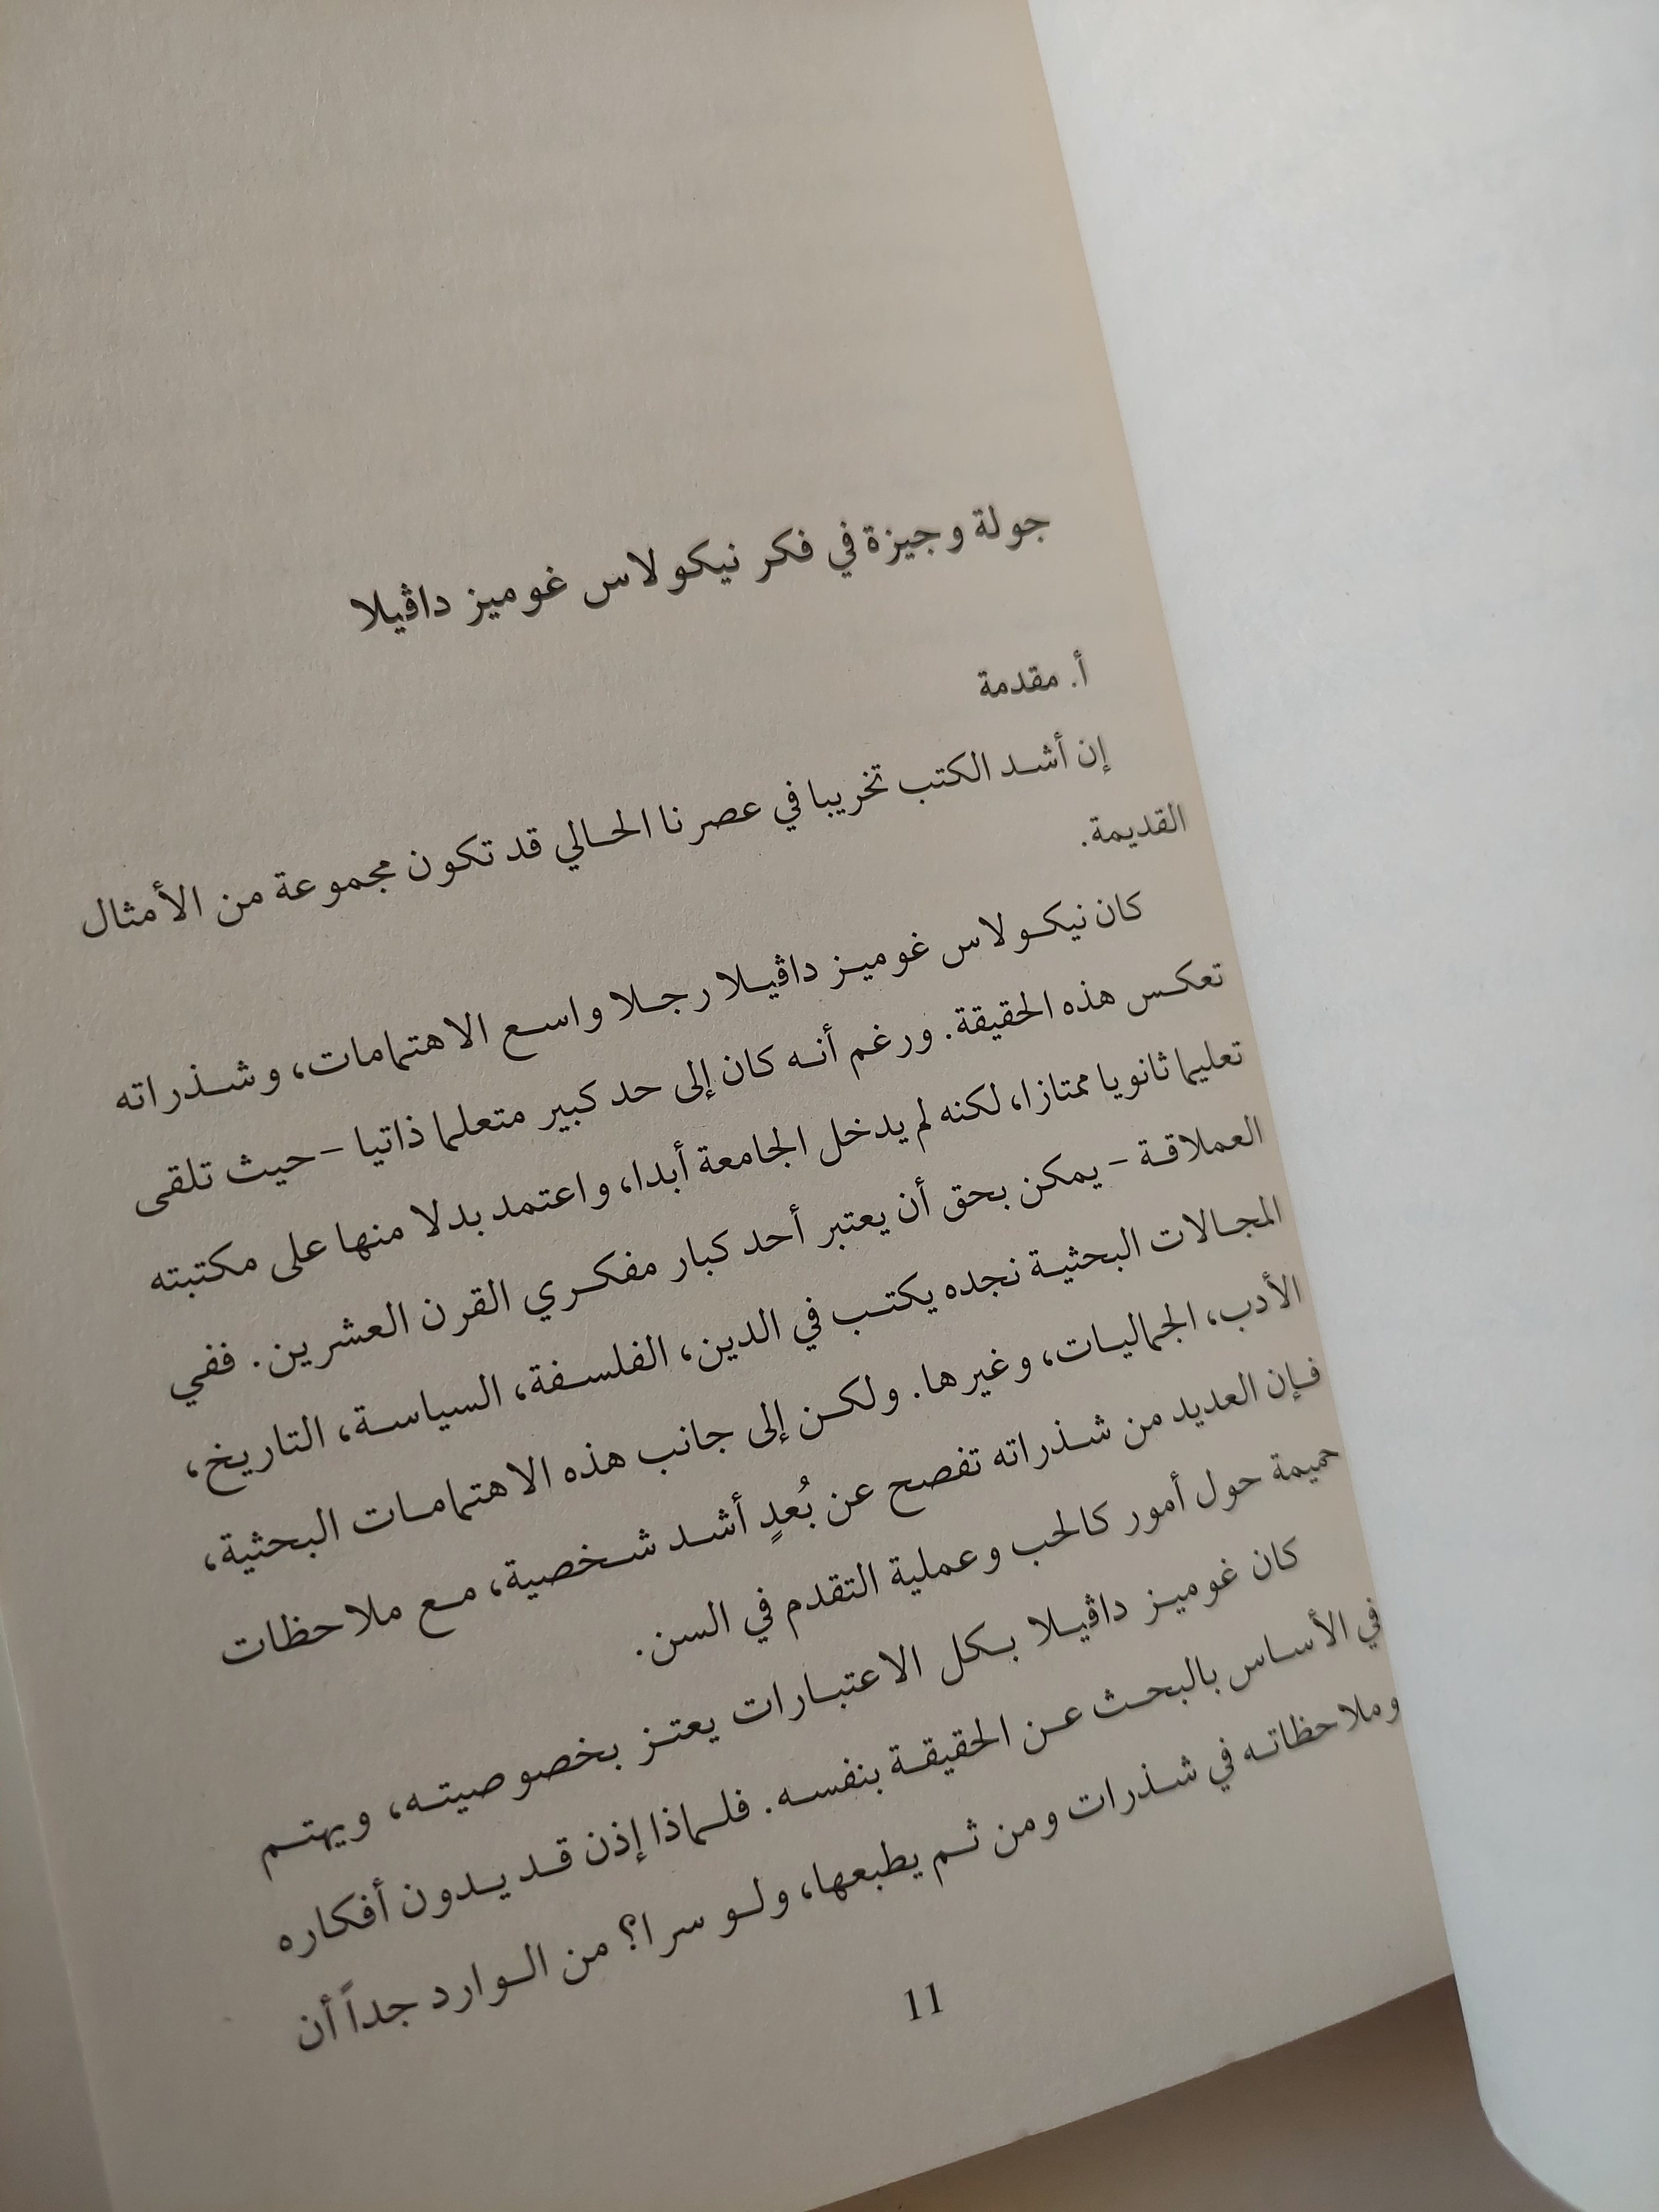 جولة وجيزة في فكر نيكولاس غوميز داڤيلا
أ. مقدمة
إن أشد الكتب تخريبا في عصرنا الحالي قد تكون مجموعة من الأمثال
القديمة.
كان نيكولاس غوميز داڤيلا رجلا واسع الاهتمامات، وشذراته
تعكس هذه الحقيقة. ورغم أنه كان إلى حد كبير متعلما ذاتيا -حيث تلقى
تعليما ثانويا ممتازا، لكنه لم يدخل الجامعة أبدا، واعتمد بدلا منها على مكتبته
العملاقة- يمكن بحق أن يعتبر أحد كبار مفكري القرن العشرين. ففي
المجالات البحثية نجده يكتب في الدين، الفلسفة، السياسة، التاريخ،
الأدب، الجماليات، وغيرها. ولكن إلى جانب هذه الاهتمامات البحثية،
فإن العديد من شذراته تفصح عن بُعدٍ أشد شخصية، مع ملاحظات
حميمة حول أمور كالحب وعملية التقدم في السن.
كان غوميز داڤيلا بكل الاعتبارات يعتز بخصوصيته، ويهتم
في الأساس بالبحث عن الحقيقة بنفسه. فلماذا إذن قد يدون أفكاره
وملاحظاته في شذرات ومن ثم يطبعها، ولو سرا؟ من الوارد جداً أن
11